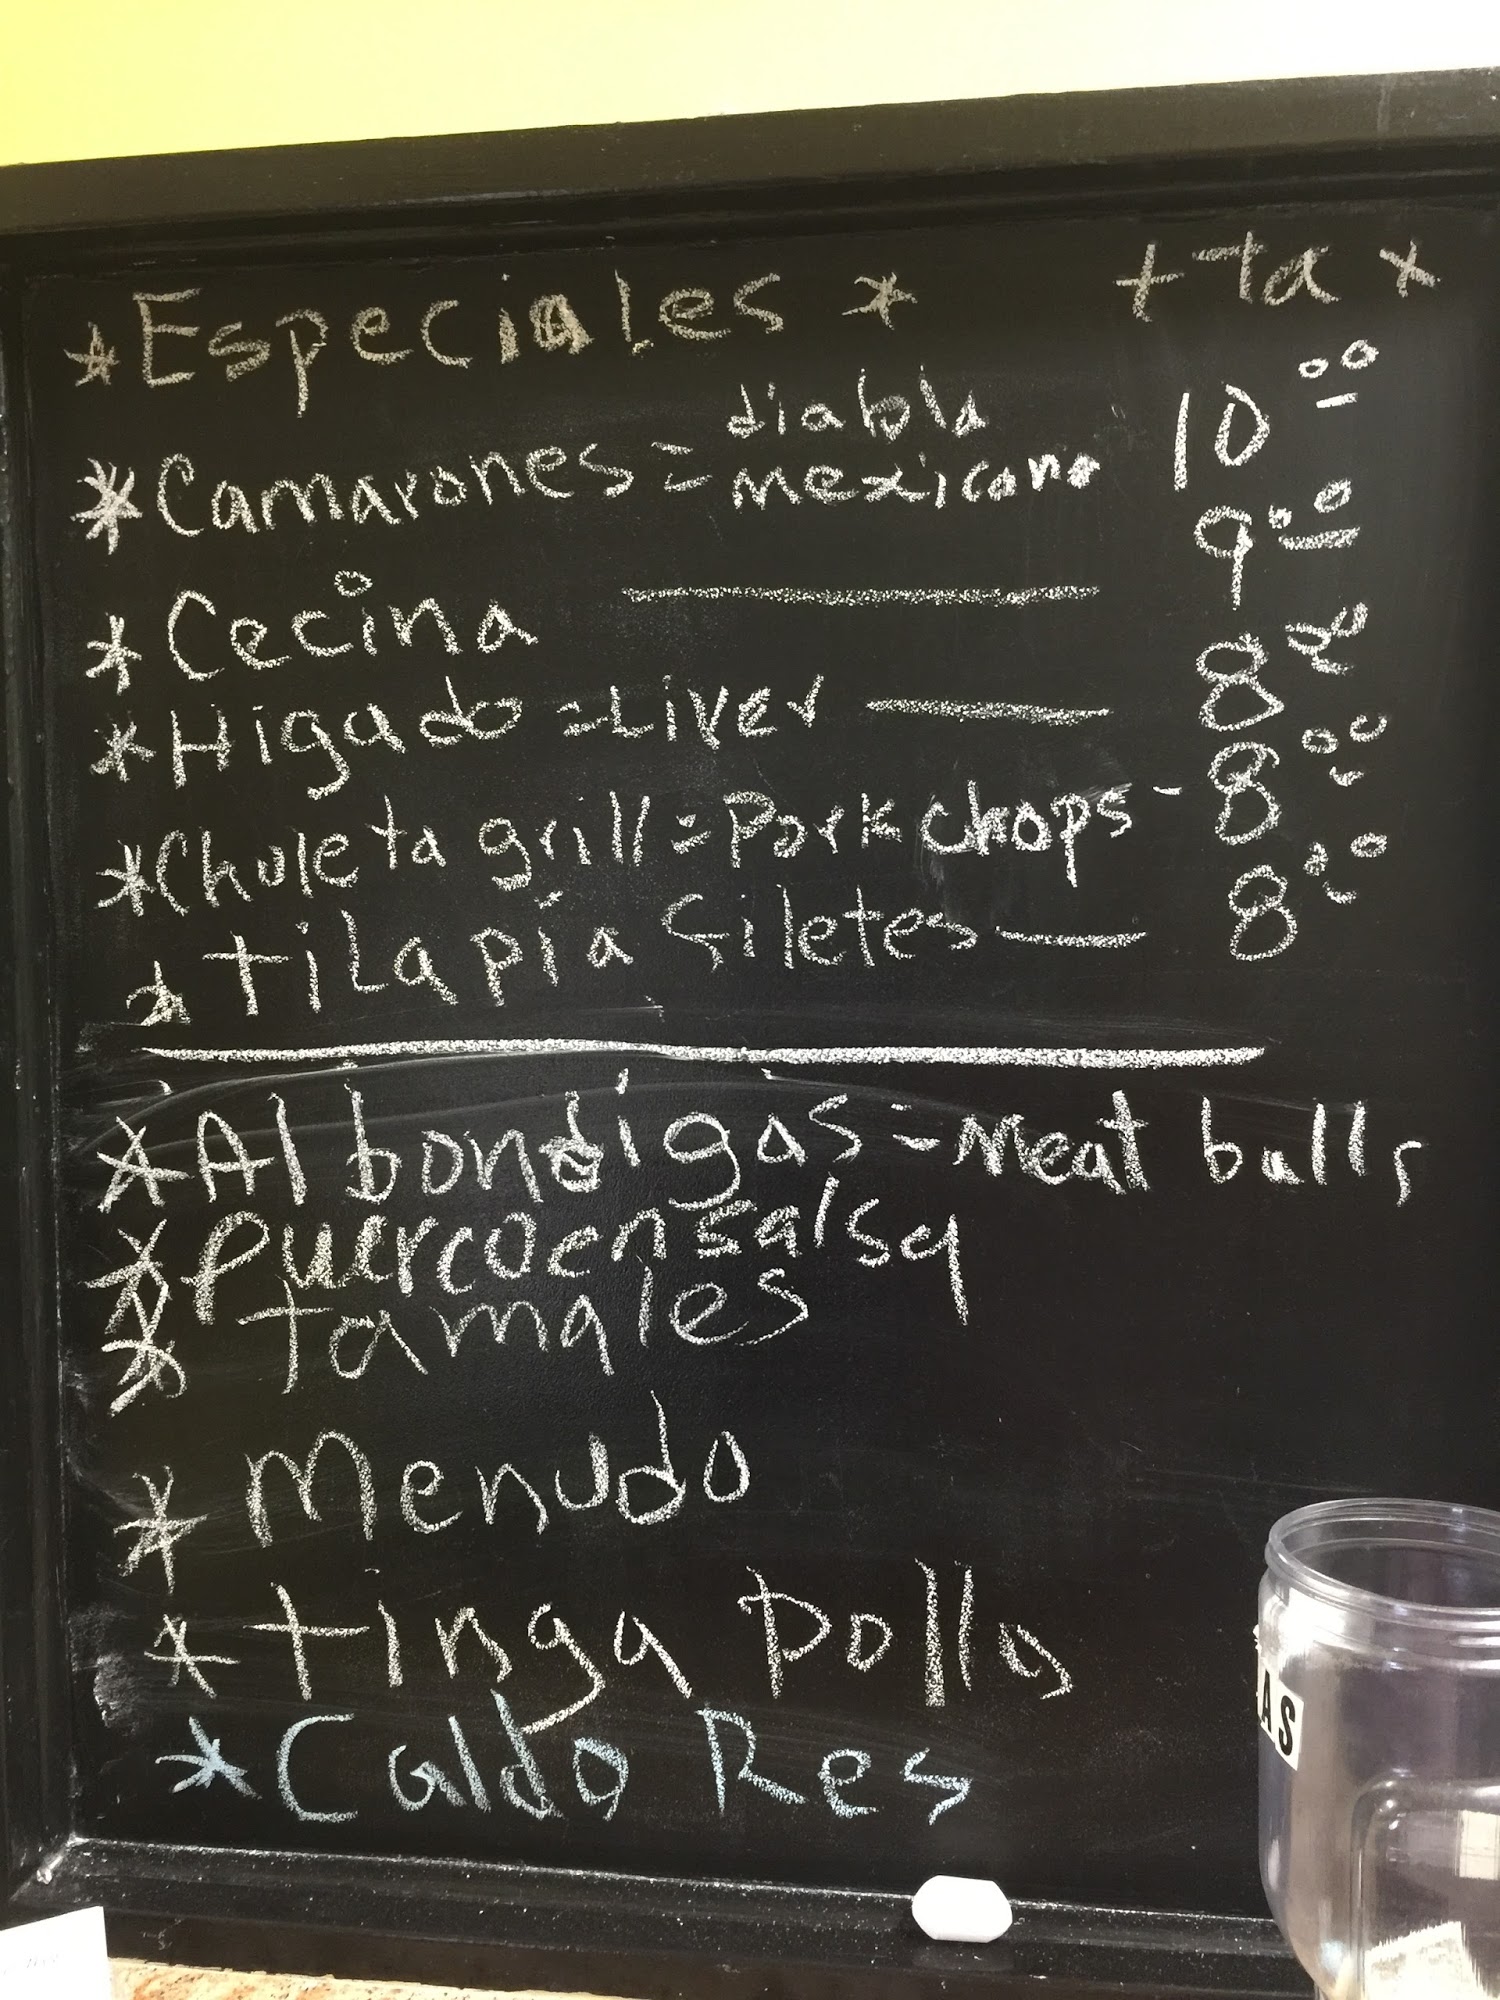 *Especiales * + tax
*Camarones = diabla mexicana 10.00
*Cecina 9.00
*Higado = Liver 8.00
*Chuleta grill = Pork chops - 8.00
*tilapia filetes 8.00
*Albondigas = Meat balls
*puercoensalsa
*tamales
*Menudo
*tinga pollo
*Caldo Res
AS